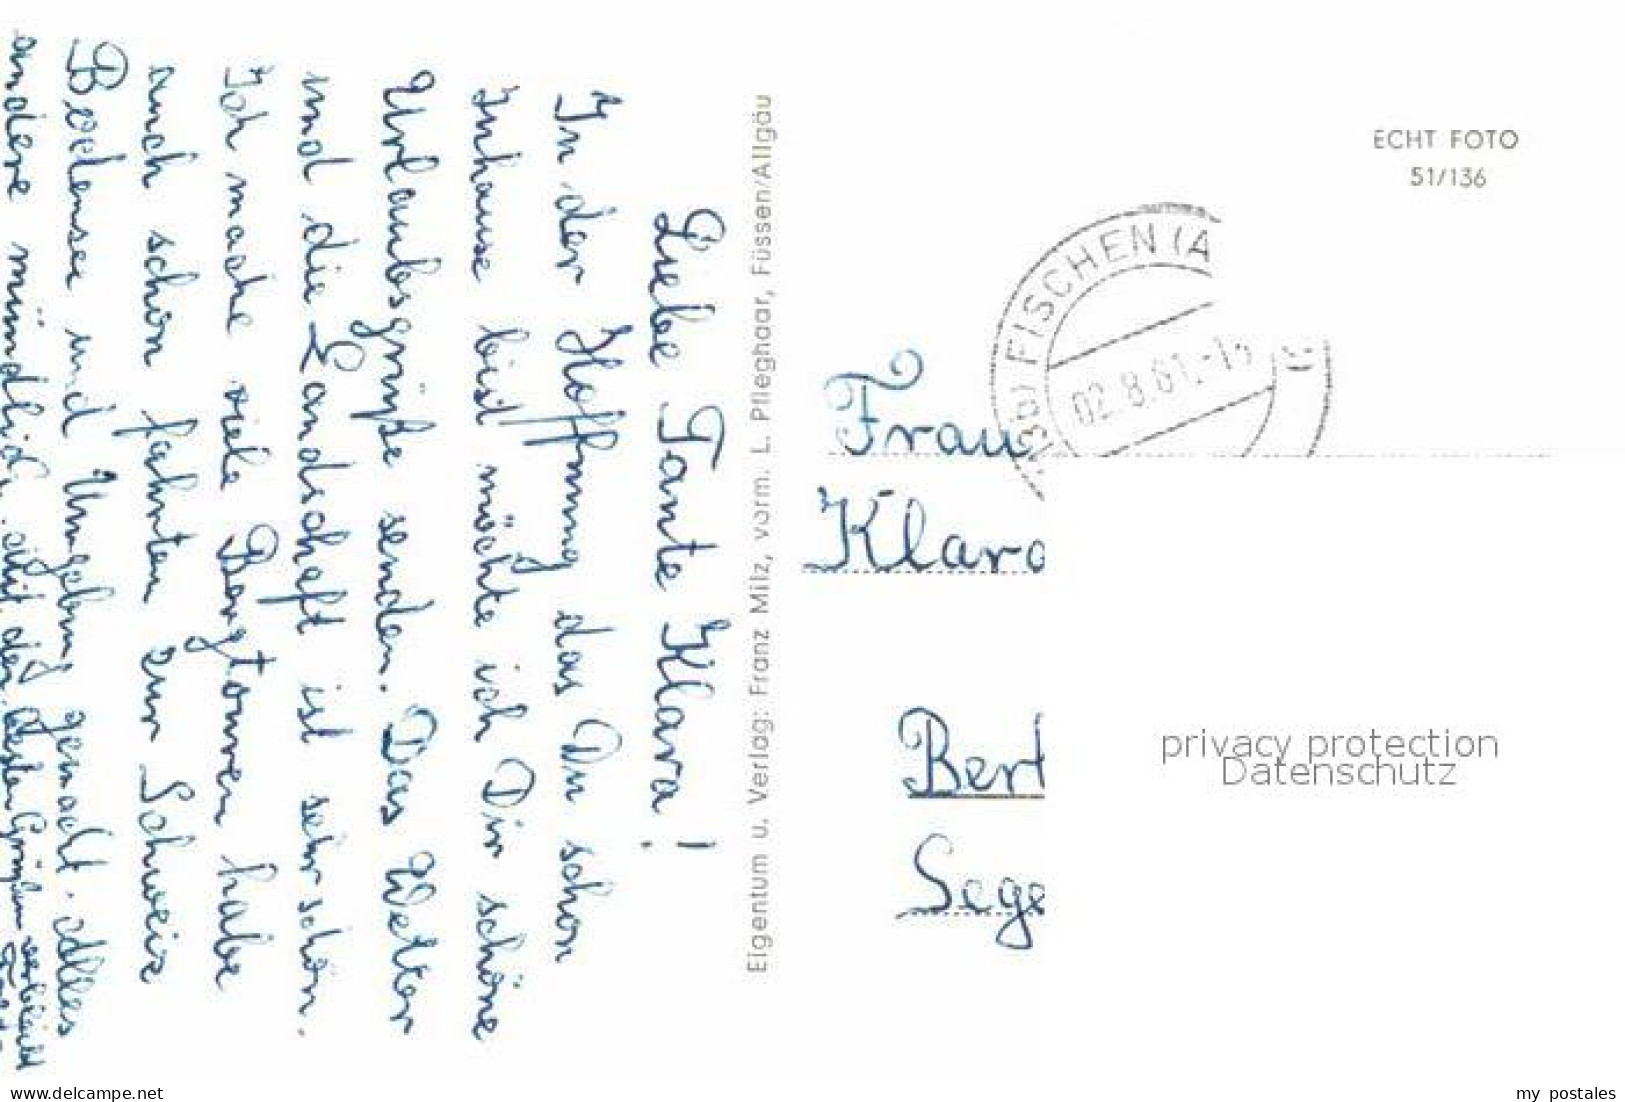 Liebe Tante Klara!
In der Hoffnung das Du schon
Inhause bist möchte ich Dir schöne
Urlaubsgrüße senden. Das Wetter
und die Landschaft ist sehr schön.
Ich mache viele Bergtouren habe
auch schon fahrten zur Schweiz
Bodensee und Umgebung gemacht. Alles
andere mündlich. Mit den besten Grüßen verbleibt
Eigentum u. Verlag: Franz Milz, vorm. L. Pfleghaar, Füssen/Allgäu
ECHT FOTO
51/136
FISCHEN (A
02.8.61.-1
Frau
Klara
Bert
Sege
privacy protection
Datenschutz
delcampe.net
my postales